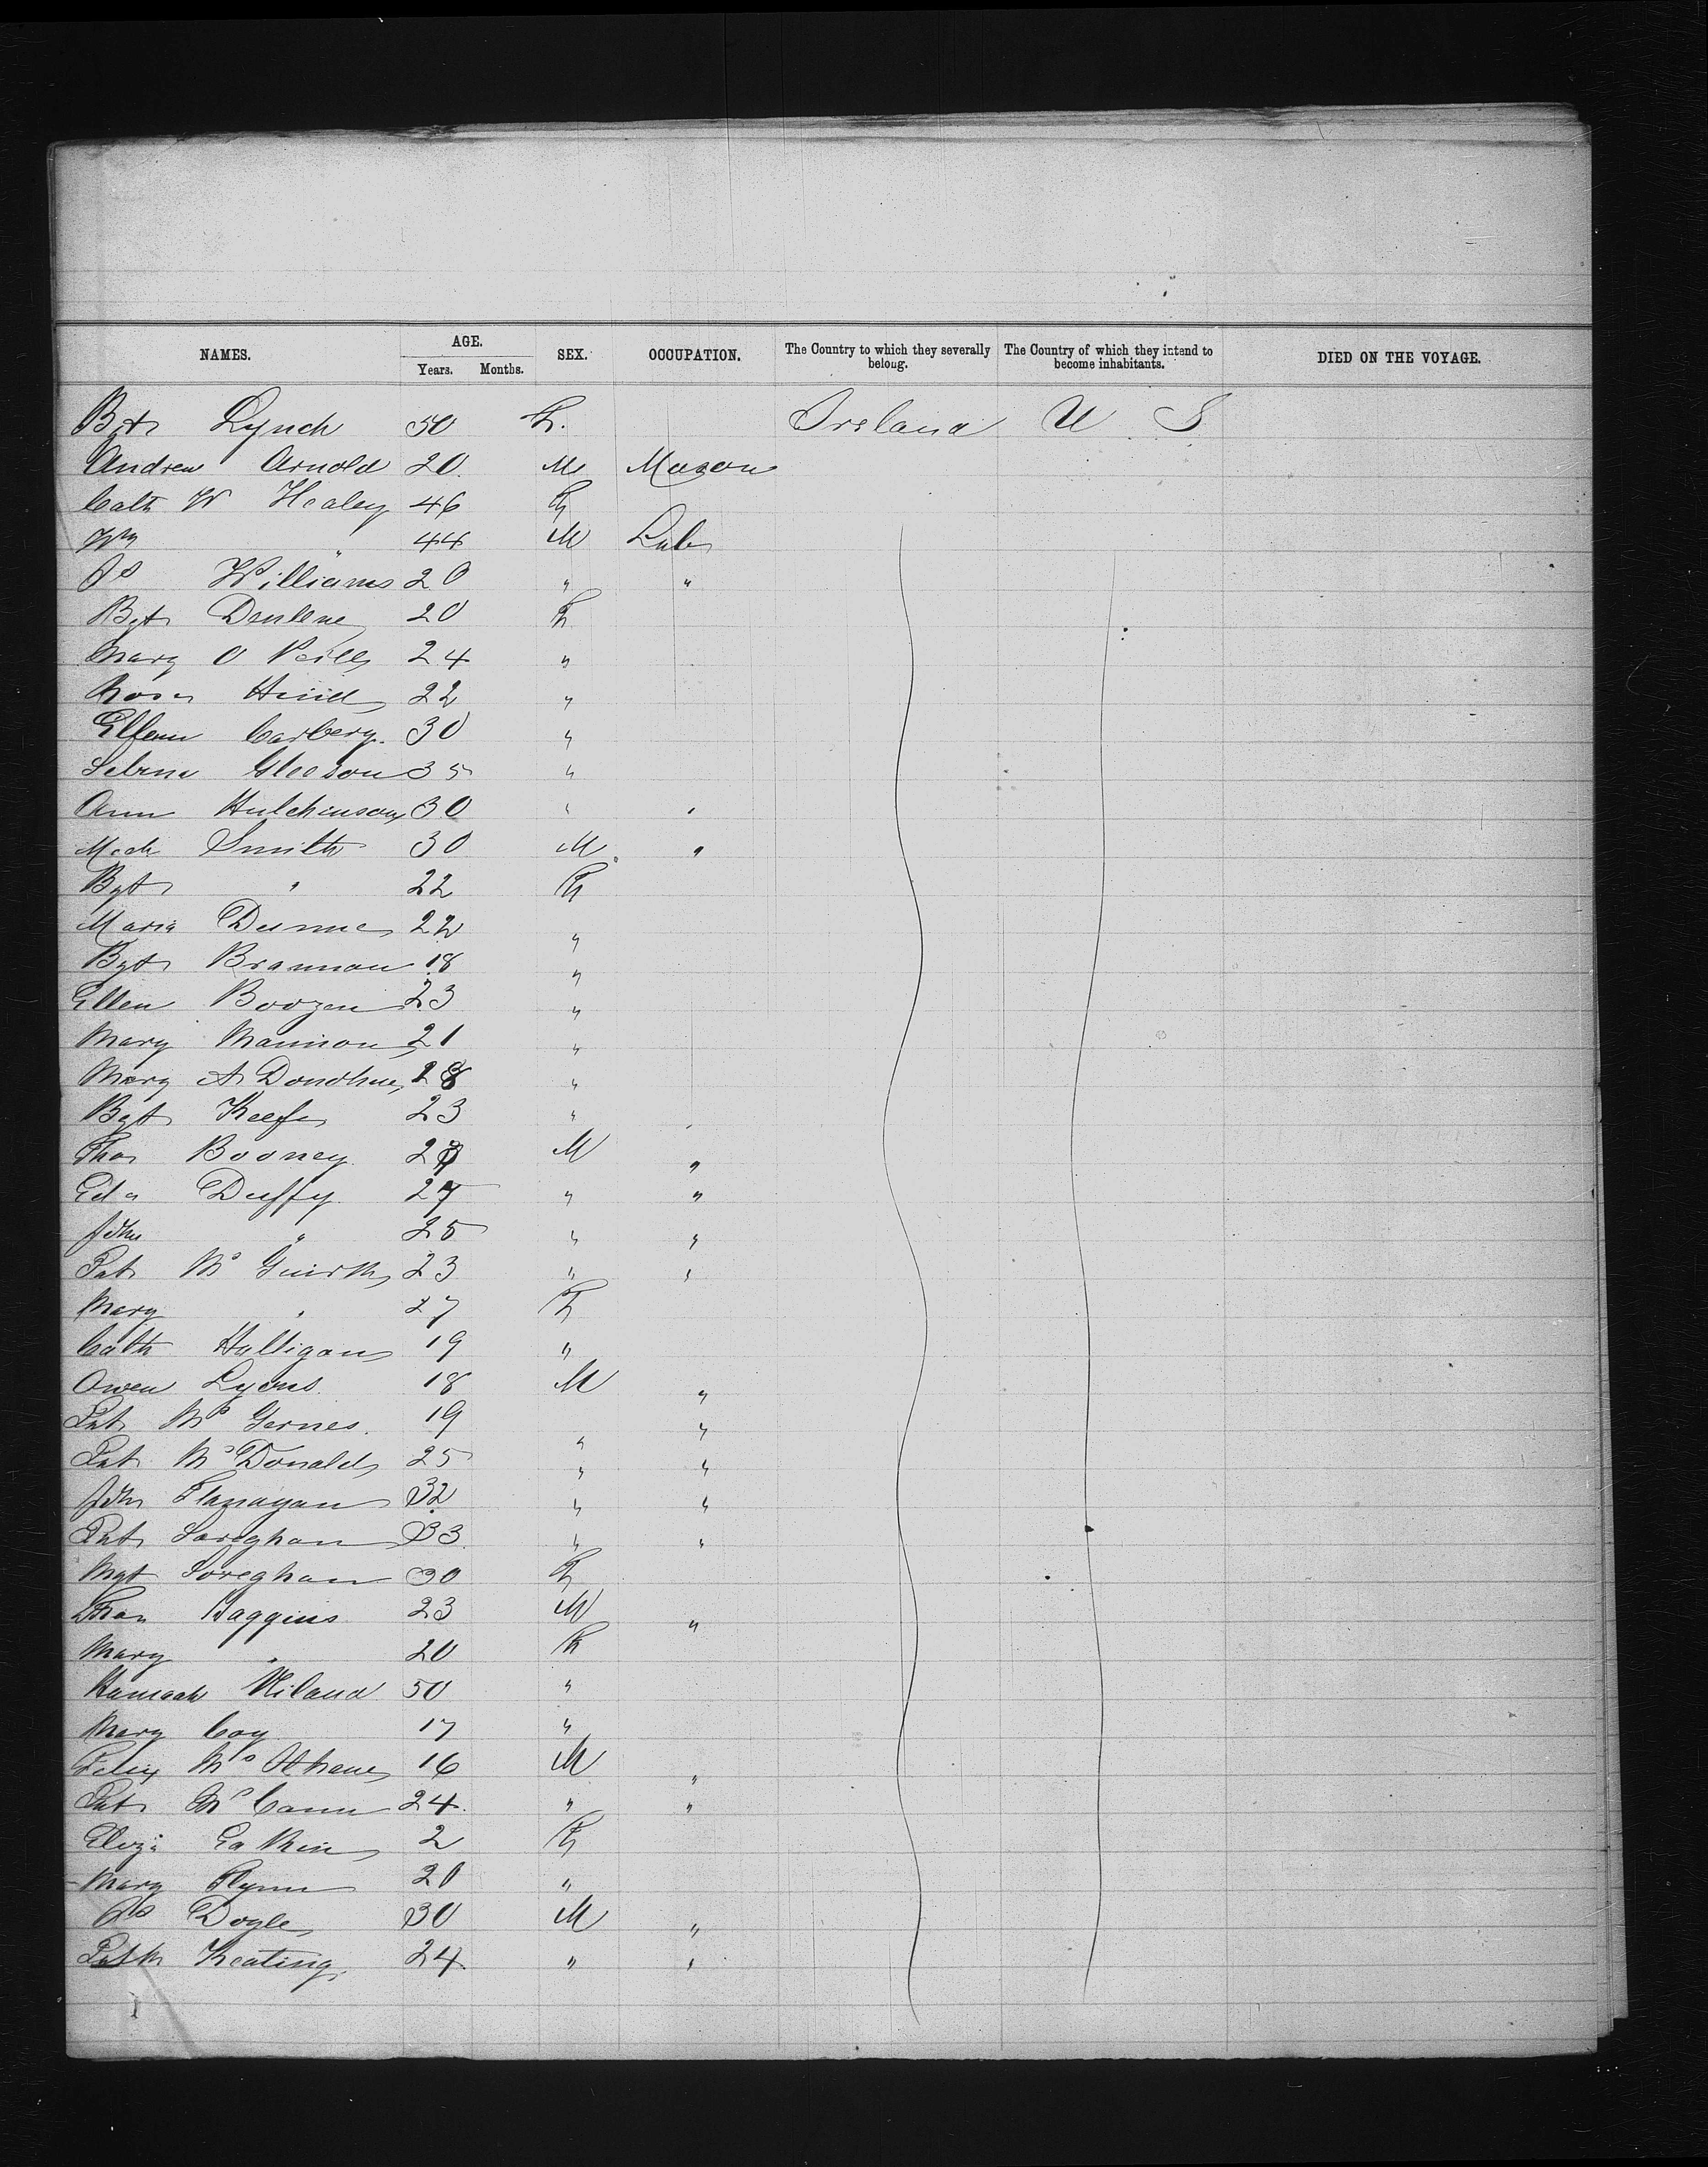 NAMES. AGE. SEX. OCCUPATION. The Country to which they severally belong. The Country of which they intend to become inhabitants. DIED ON THE VOYAGE.
Years. Months.
Bgt Lynch 50 F. Ireland U S
Andrew Arnold 20 M Mason
Cath W Healey 46 F
Wm " 44 M Lab
Js Williams 20 " "
Bgt 20 F
Mary O Neill 24 "
Rosa 22 "
Ellen Carbery. 30 "
Gleeson 35 "
Ann Hutchinson 30 "
Mich Smith 30 M "
Bgt " 22 F
Maria Dunne 22 "
Bgt Brannan 18 "
Ellen 23 "
Mary Mannion 21 "
Mary A Donohue 28 "
Bgt Keefe 23 "
Thos Booney 2 M "
Edw Duffy 27 " "
John " 25 " "
Pat Mc 23 " "
Mary " 27 F
Cath Halligan 19 "
Owen Lyons 18 M "
Pat Mc Gernes 19 " "
Pat McDonald 25 " "
John Flanagan 32 " "
Pat Soreghan 33 " "
Mgt Soreghan 30 F
Thos Haggins 23 M "
Mary " 20 F
Hannah Hiland 50 "
Mary Coy 17 "
Felix Mc 16 M "
Pat McCann 24 " "
Eliza 2 F
Mary Flynn 20 "
Js Doyle 30 M "
Patk Keating 24 " "